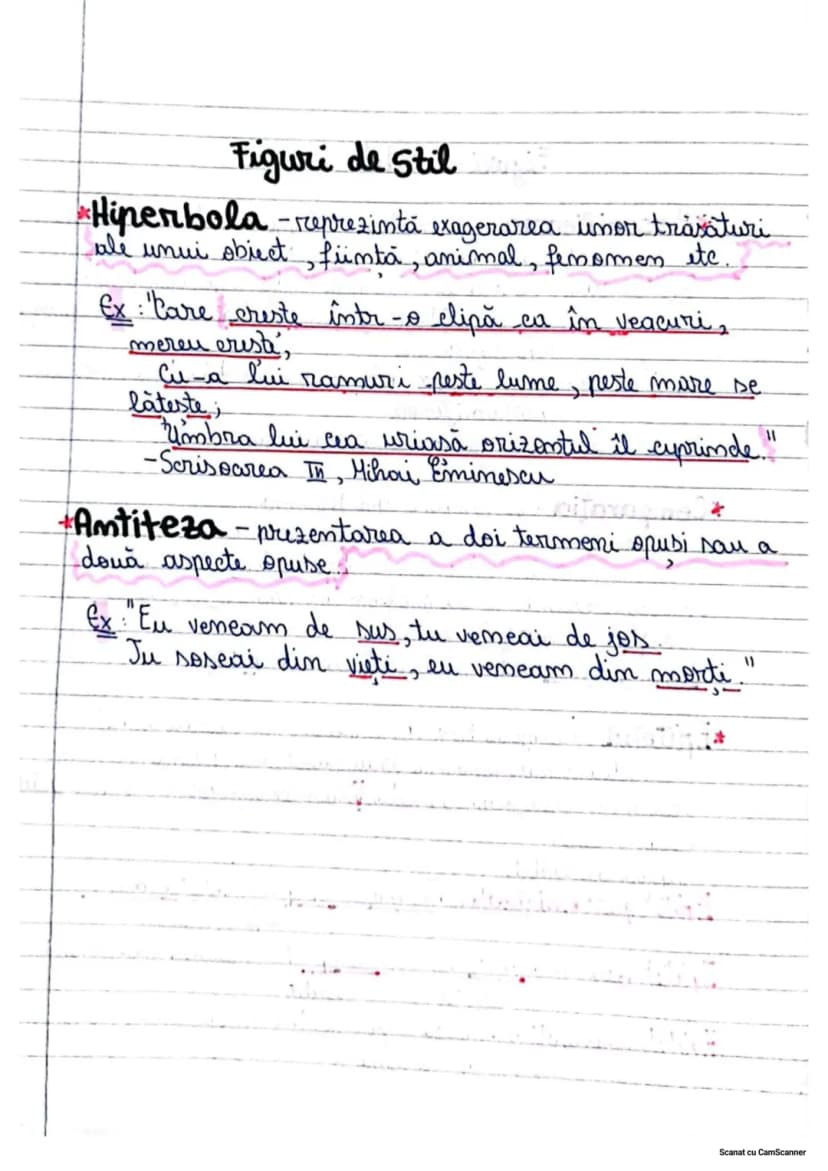 Figuri de Stil
*Hiperbola - reprezintă exagerarea unor trăsături
ale unui obiect, ființă, animal, fenomen etc.
Ex: "Care crește într-o clipă ca în veacuri,
mereu crește,
Cu-a lui ramuri peste lume, peste mare se
lătește;
Umbra lui cea uriașă orizontul îl cuprinde."
-Scrisoarea III, Mihai Eminescu
*Antiteza - prezentarea a doi termeni opuși sau a
două aspecte opuse.
Ex: "Eu veneam de sus, tu veneai de jos.
Tu soseai din vieți, eu veneam din morți."
Scanat cu CamScanner